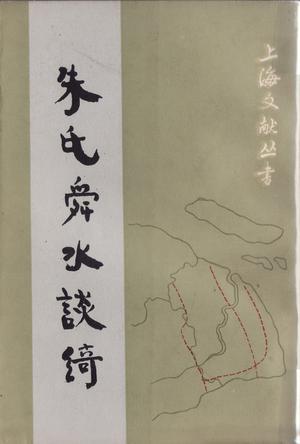 朱氏舜水談綺
上海文献丛书